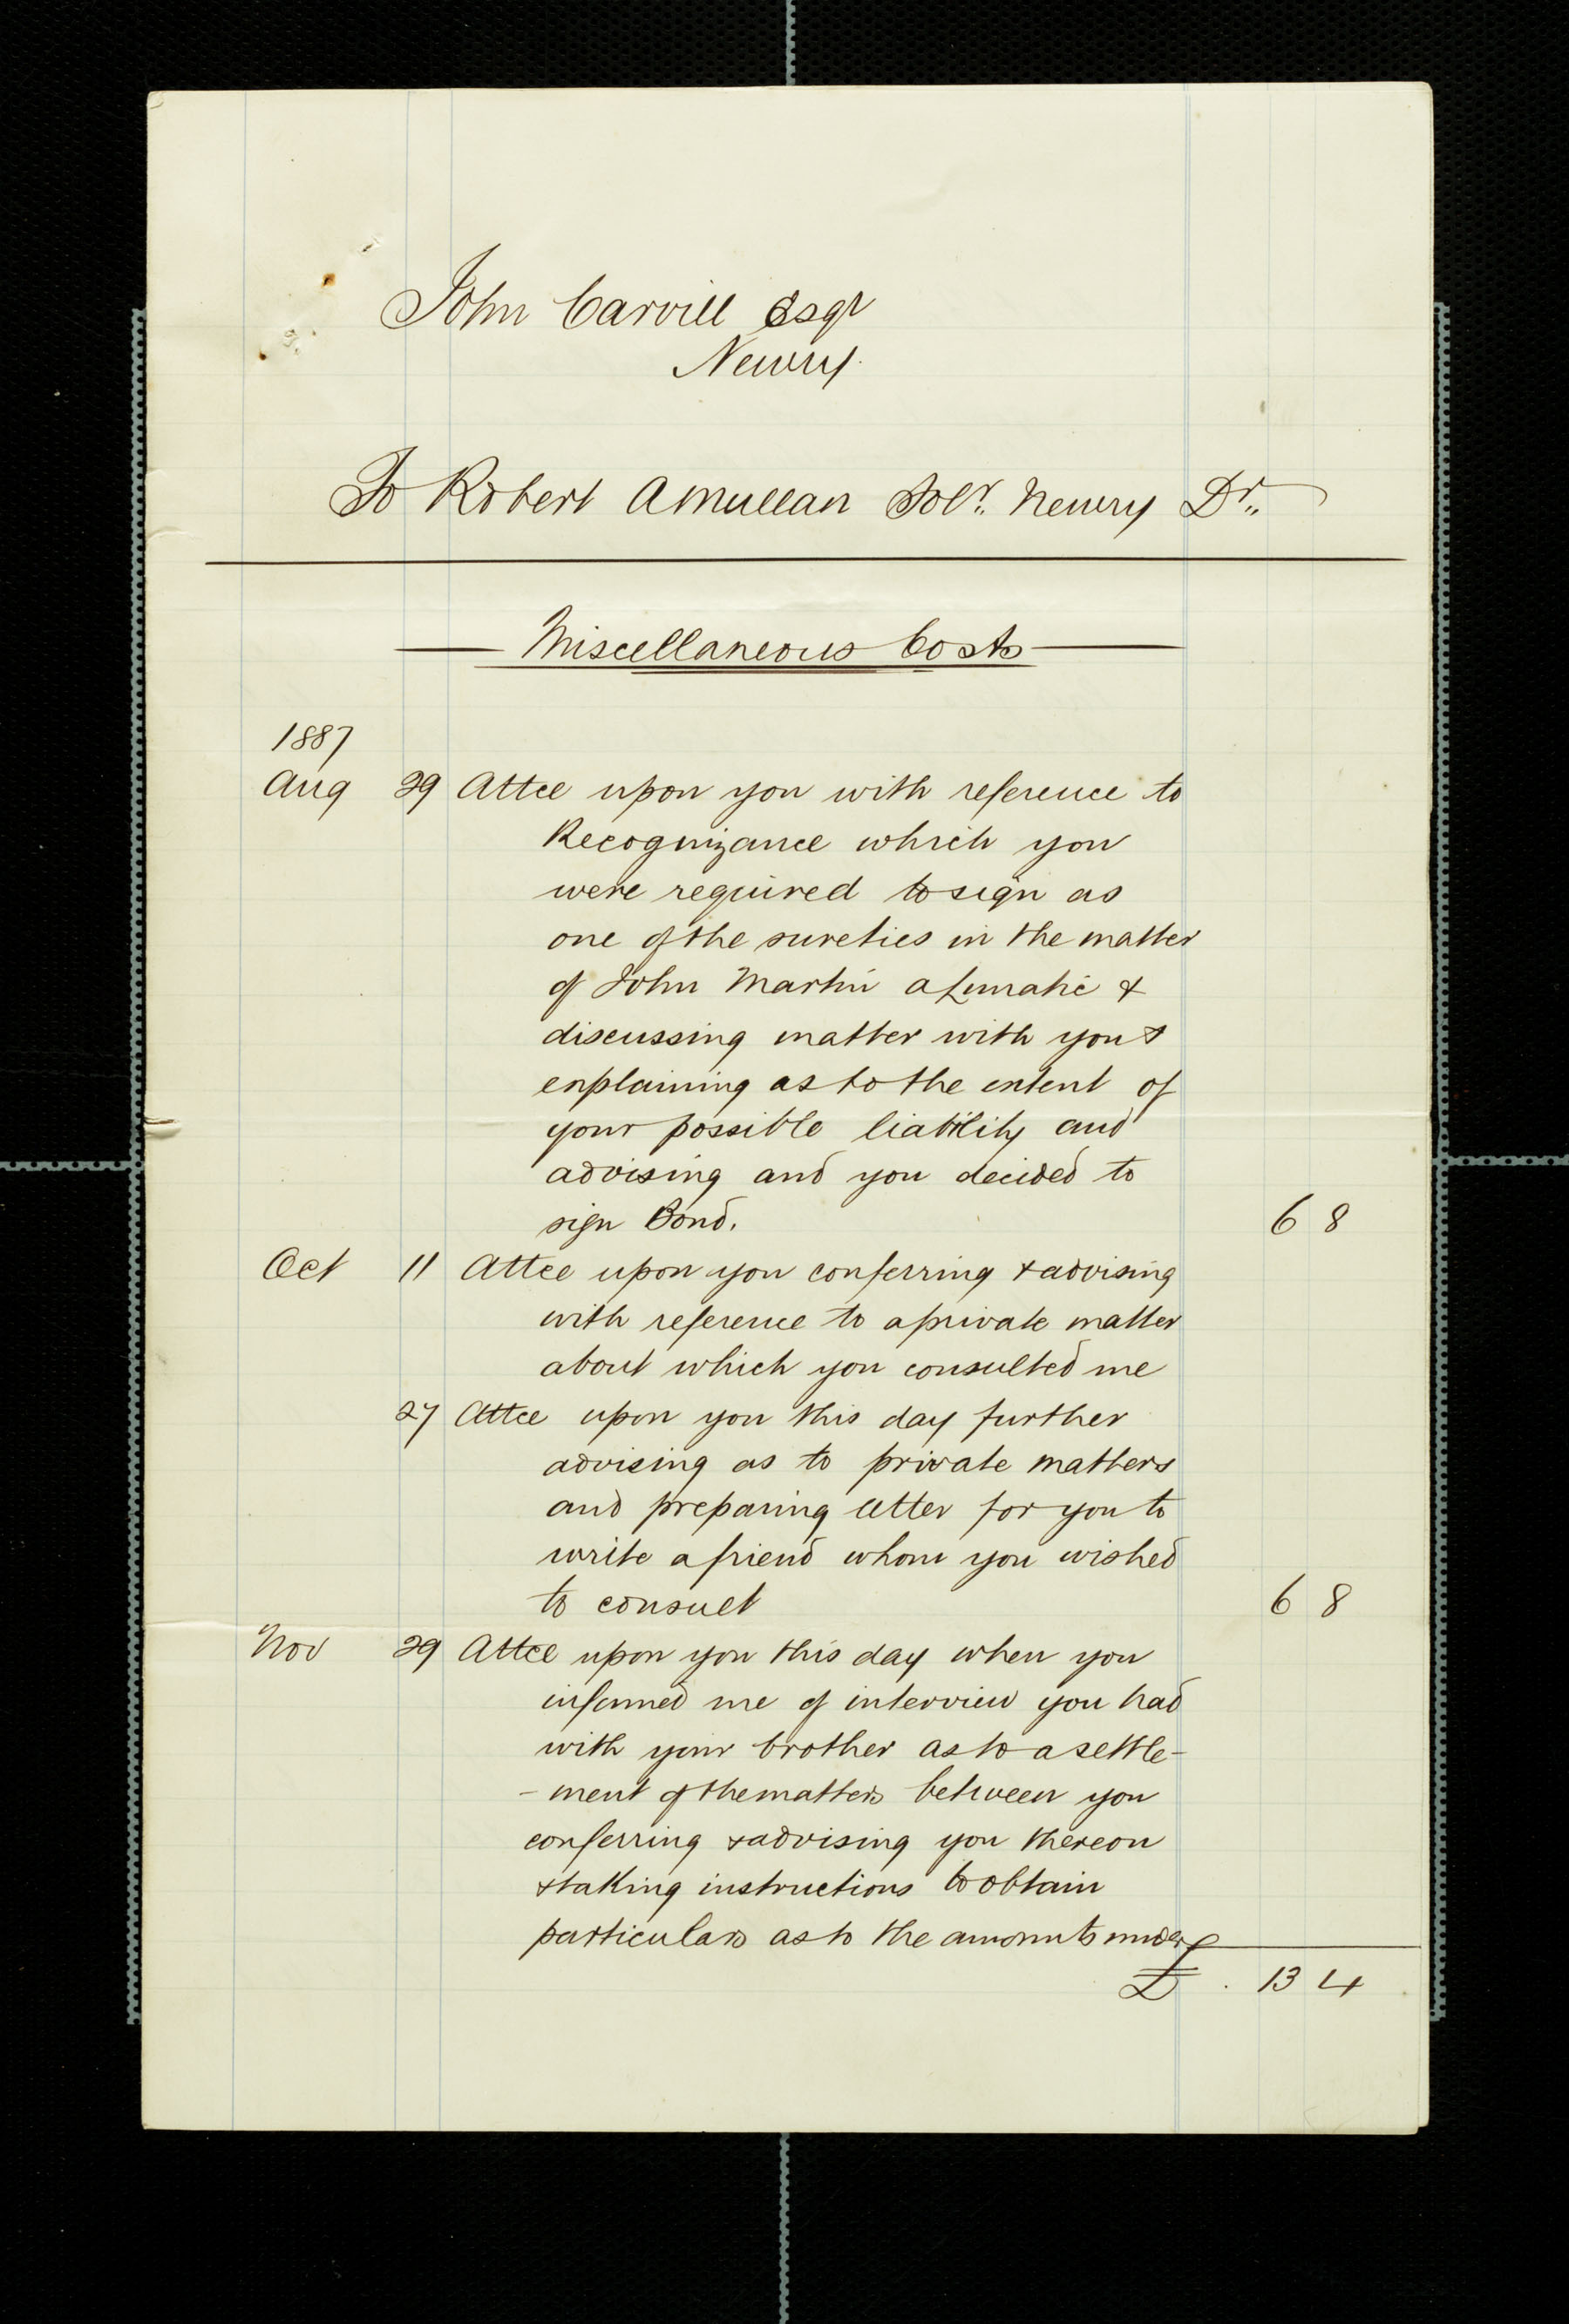 John Carvill Esqr
Newry.
To Robert A Mullan Solr. Newry Dr.
Miscellaneous Costs
1887
Aug 29 Attce upon you with reference to
Recognizance which you
were required to sign as
one of the sureties in the matter
of John Martin a Lunatic &
discussing matter with you &
explaining as to the extent of
your possible liability and
advising and you decided to
sign Bond. 6 8
Oct 11 Attce upon you conferring & advising
with reference to a private matter
about which you consulted me
27 Attce upon you this day further
advising as to private matters
and preparing letter for you to
write a friend whom you wished
to consult 6 8
Nov 29 Attce upon you this day when you
informed me of interview you had
with your brother as to a settle-
-ment of the matters between you
conferring & advising you thereon
& taking instructions to obtain
particulars as to the amounts under
£ . 13 4